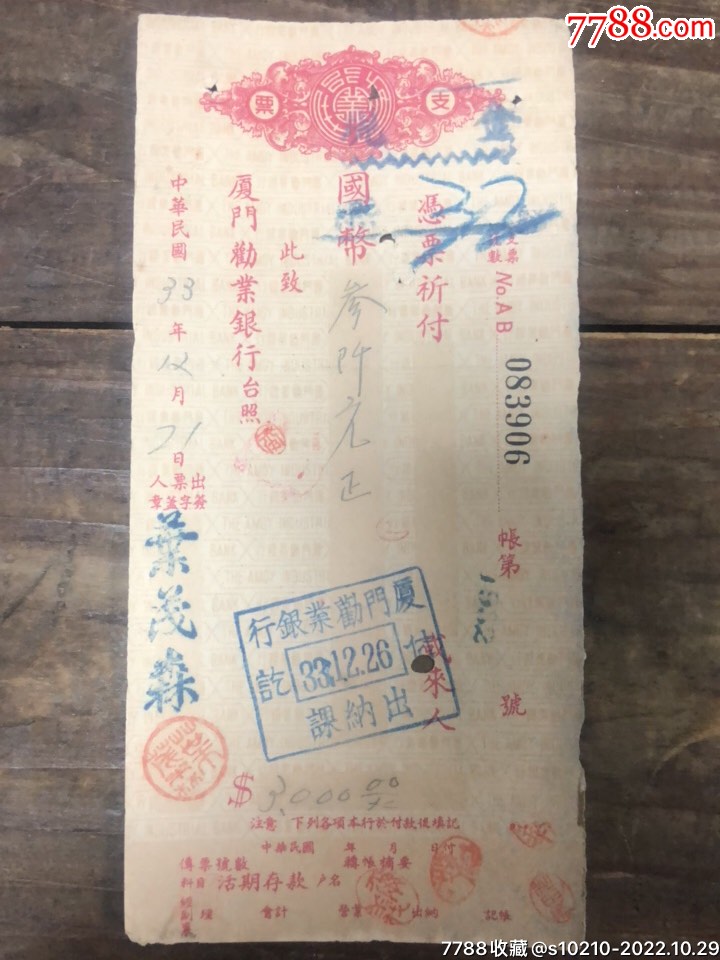 7788.com
支票
業
支票號數 No. AB 083906
帳第 號
憑票祈付
或來人
國幣 參阡元正
此致
廈門勸業銀行台照
中華民國 33 年 12 月 21 日
出票人
簽字蓋章
葉茂森
廈門勸業銀行
付 33.12.26 訖
出納課
$ 3,000 00
注意 下列各項本行於付款後填記
中華民國 年 月 日付
傳票號數 轉帳摘要
科目 活期存款 戶名
經理 會計 營業 出納 記帳
副襄
7788收藏@s10210-2022.10.29